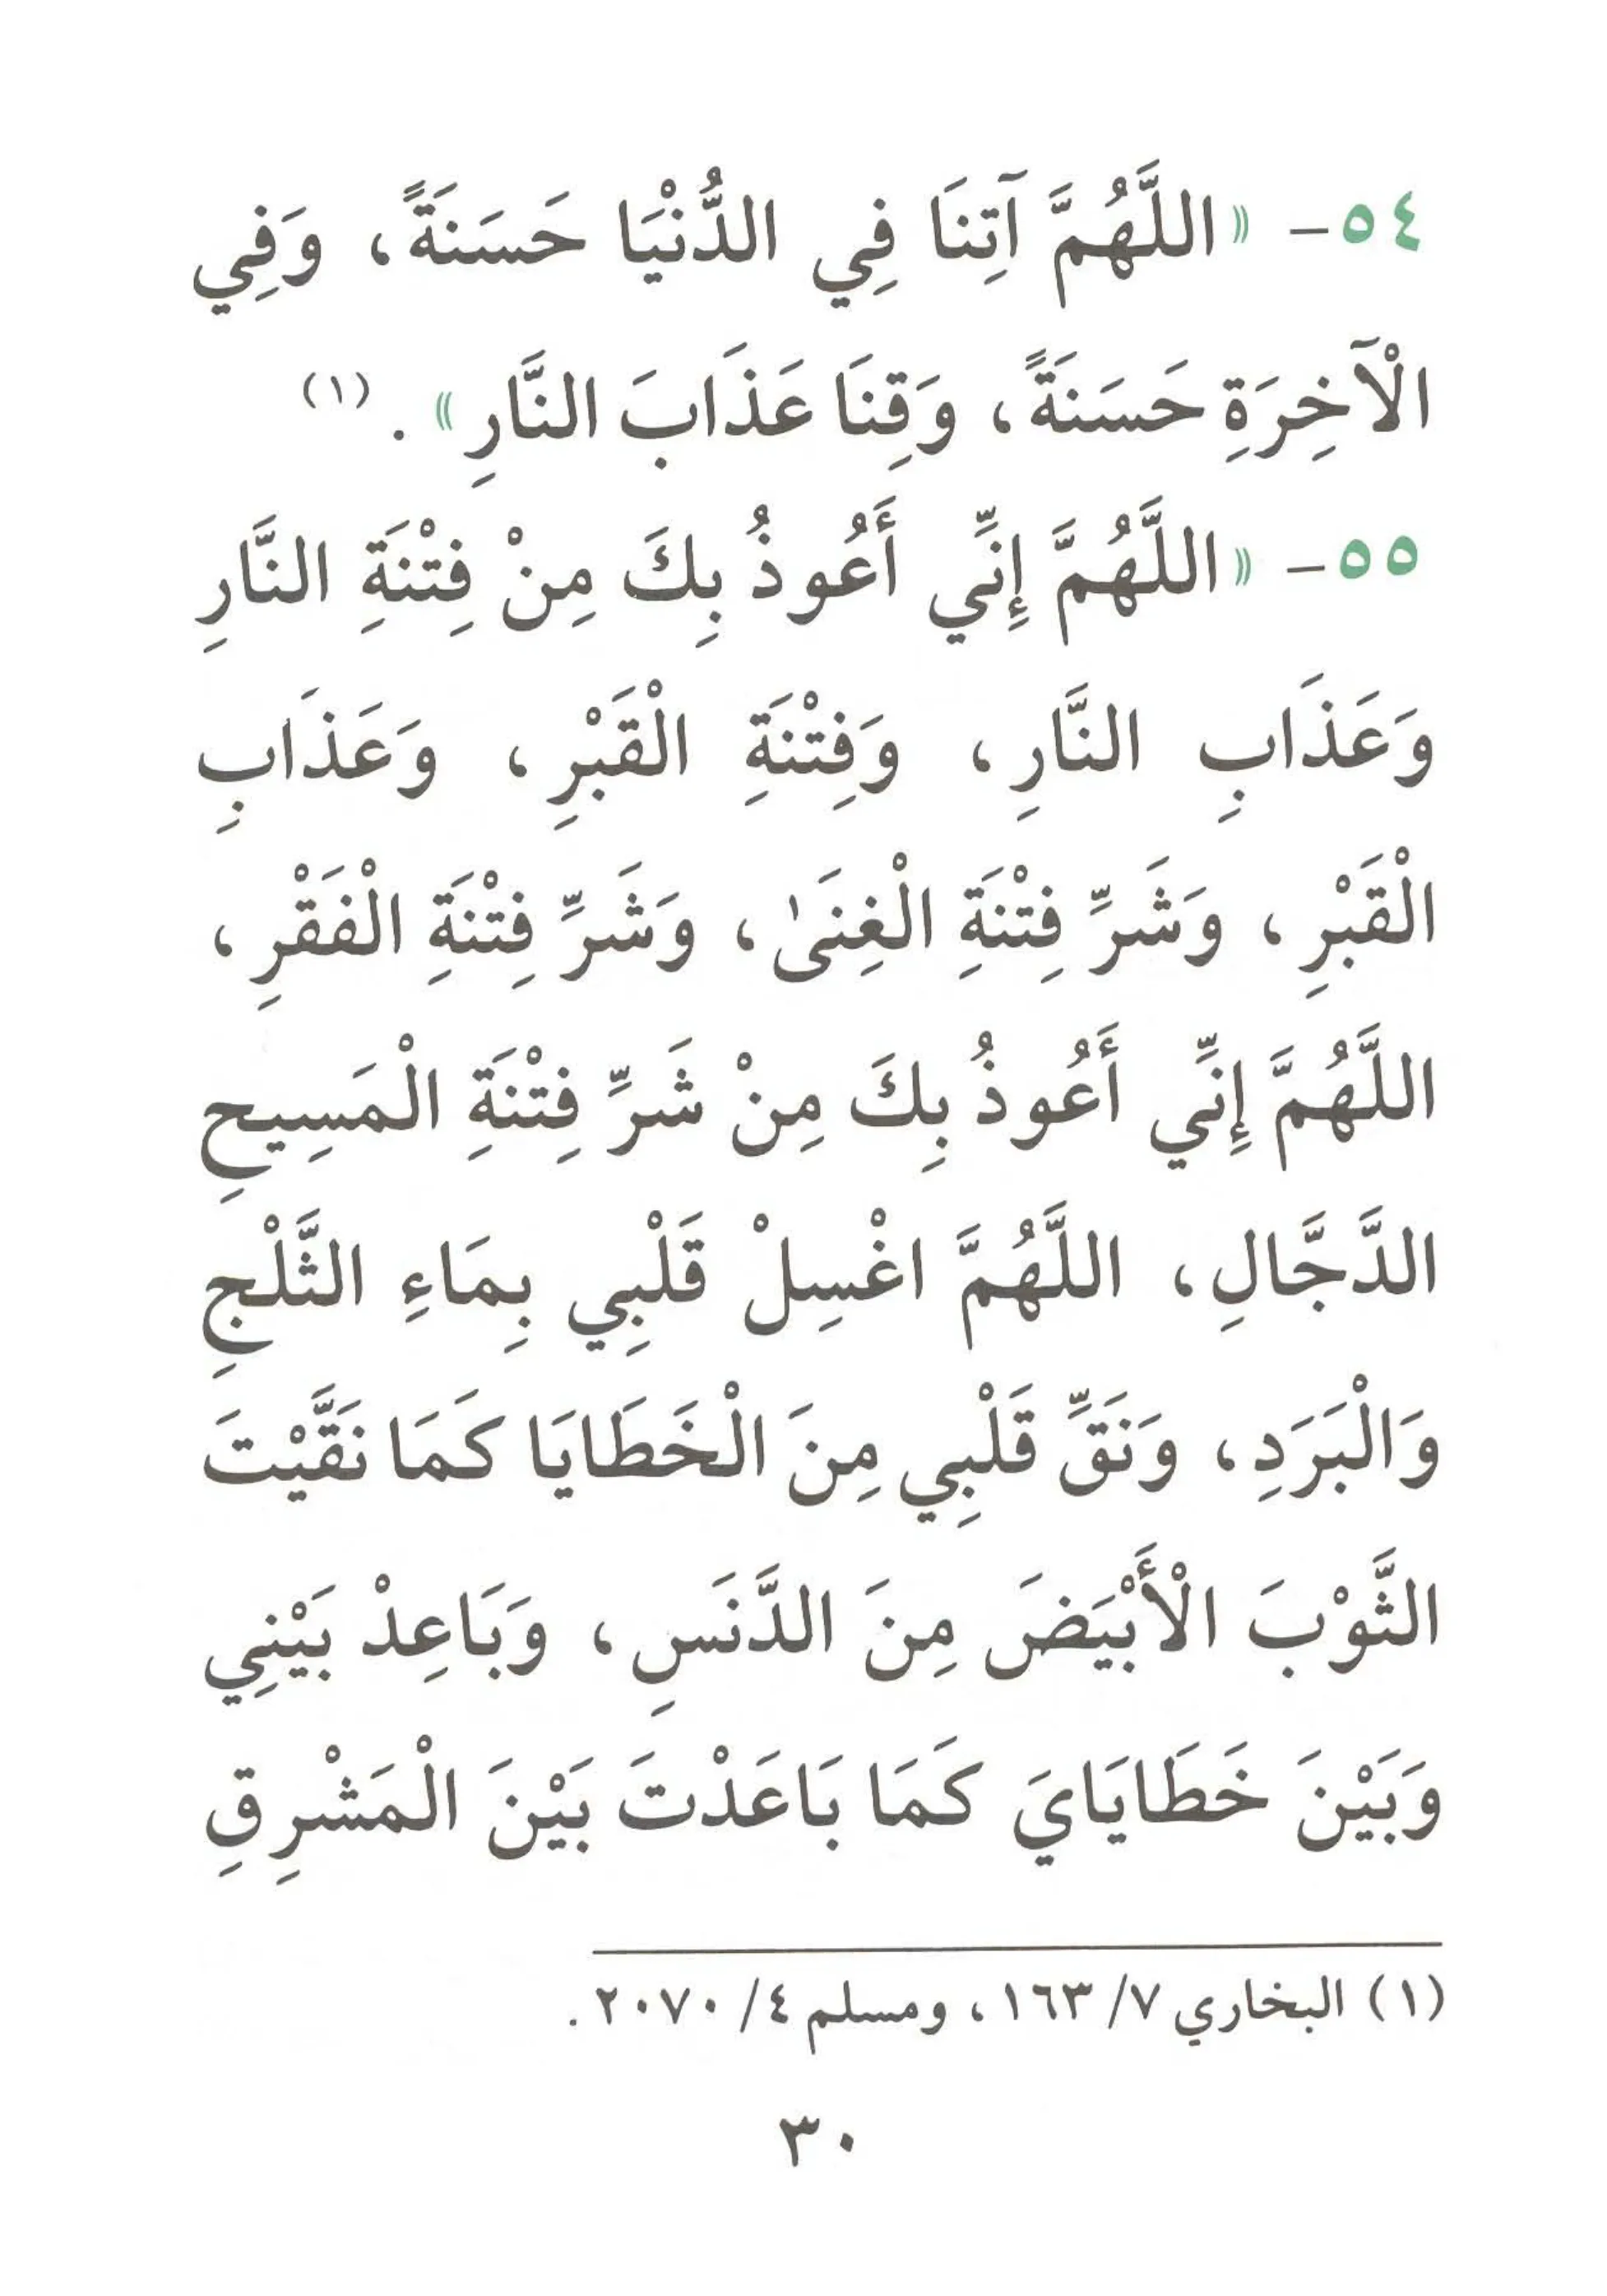 ٥٤- «اللَّهُمَّ آتِنَا فِي الدُّنْيَا حَسَنَةً، وَفِي
الْآخِرَةِ حَسَنَةً، وَقِنَا عَذَابَ النَّارِ». (١)
٥٥- «اللَّهُمَّ إِنِّي أَعُوذُ بِكَ مِنْ فِتْنَةِ النَّارِ
وَعَذَابِ النَّارِ، وَفِتْنَةِ الْقَبْرِ، وَعَذَابِ
الْقَبْرِ، وَشَرِّ فِتْنَةِ الْغِنَىٰ، وَشَرِّ فِتْنَةِ الْفَقْرِ،
اللَّهُمَّ إِنِّي أَعُوذُ بِكَ مِنْ شَرِّ فِتْنَةِ الْمَسِيحِ
الدَّجَّالِ، اللَّهُمَّ اغْسِلْ قَلْبِي بِمَاءِ الثَّلْجِ
وَالْبَرَدِ، وَنَقِّ قَلْبِي مِنَ الْخَطَايَا كَمَا نَقَّيْتَ
الثَّوْبَ الْأَبْيَضَ مِنَ الدَّنَسِ، وَبَاعِدْ بَيْنِي
وَبَيْنَ خَطَايَايَ كَمَا بَاعَدْتَ بَيْنَ الْمَشْرِقِ
(١) البخاري ٧/ ١٦٣، ومسلم ٤/ ٢٠٧٠.
٣٠